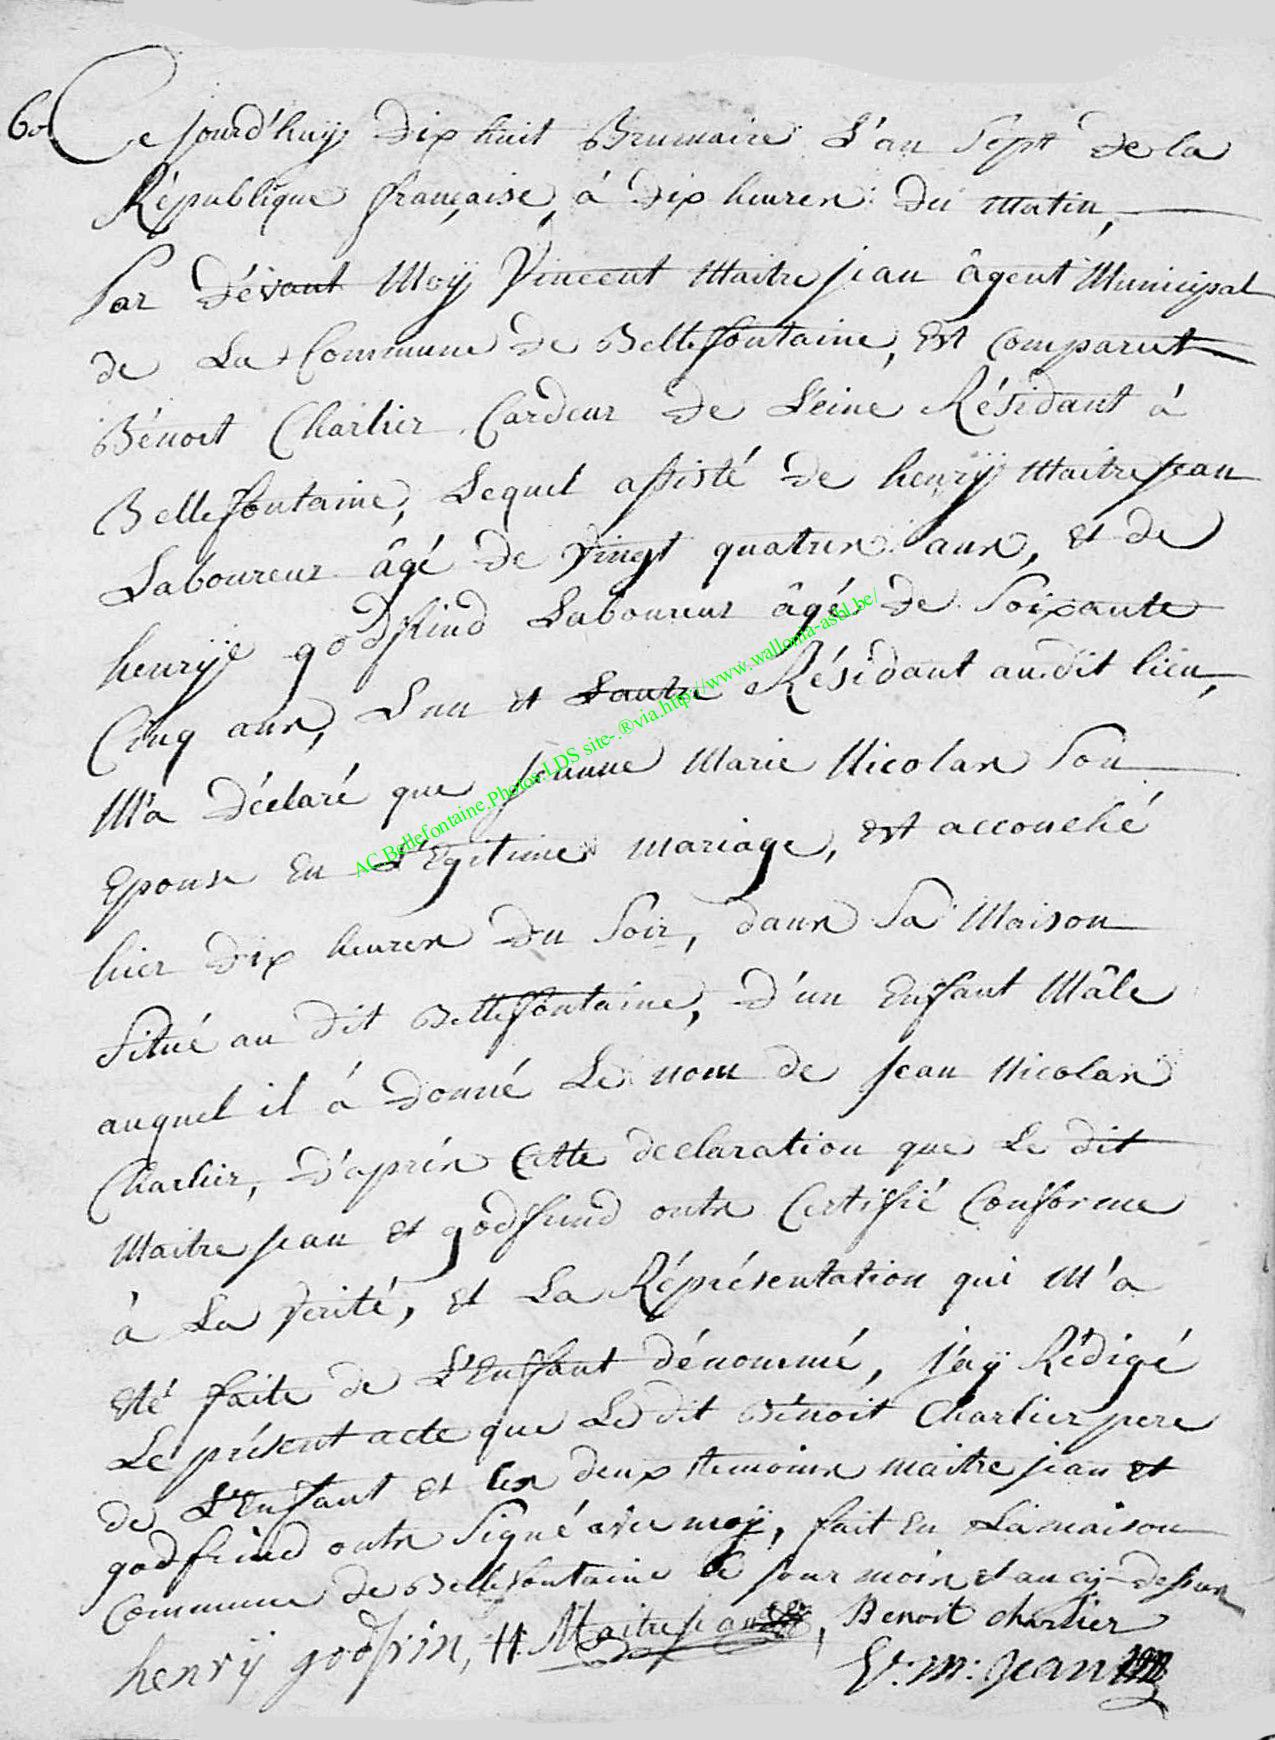 60 Ce jourd'huÿ Dix huit Brumaire L'an Sept de la
République française, à Dix heures du matin,
Par dévant Moÿ Vincent Maitrejean âgent Municipal
de La Commune de Bellefontaine, Est Comparut
Bénoit Charlier Cardeur de Leine Résidant à
Bellefontaine, Lequel assisté de henrÿ Maitrejean
Laboureur âgé de Vingt quatres ans, et de
henrÿe godfrind Laboureur âgé de Soixante
Cinq ans, L'un et Lautre Résidant audit lieu,
M'a Déclaré que Jeanne Marie Nicolas Son
Epouse En L'Egitime mariage, Est accouché
hier Dix heures Du Soir, dans Sa Maison
Situé au dit Bellefontaine, D'un Enfant Mâle
auquel il à Donné Le nom de Jean Nicolas
Charlier, D'après Cette declaration que Le dit
Maitrejean et godfrind onts Certifié Conforme
à La Verité, et La Réprésentation qui M'a
Eté faite de L'Enfant dénommé, j'aÿ Rédigé
Le présent acte que Le dit Bénoit Charlier pere
de L'Enfant et les deux temoins maitrejean et
godfriend onts Signé avec moÿ, fait En La maison
Commune de Bellefontaine Le jour mois et an cÿ-dessus
henrÿ godfrin, H. Maitrejean, Benoit charlier
V: m: jean
AC Bellefontaine.Photos.LDS site-.®via.http://www.wallonia-asbl.be/